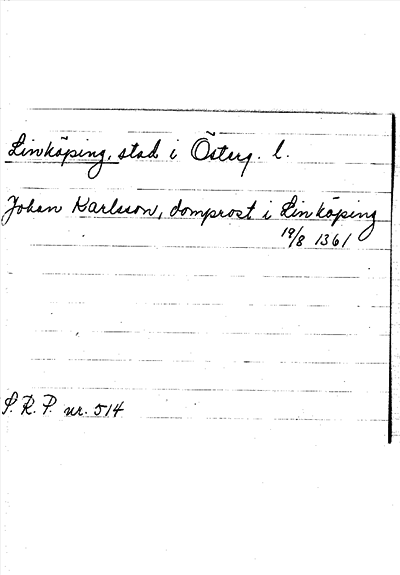 Linköping, stad i Österg. l.
Johan Karlsson, domprost i Linköping
19/8 1361
S. R. P. nr. 514